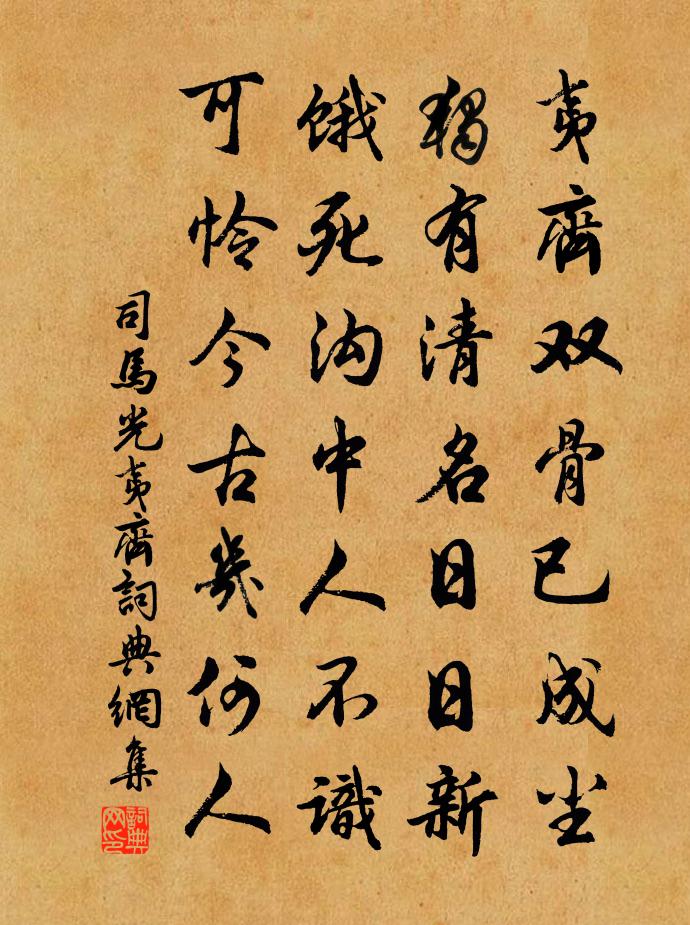 夷齊双骨已成尘
獨有清名日日新
餓死沟中人不識
可怜今古幾何人
司馬光夷齊詞典網集
詞典网印